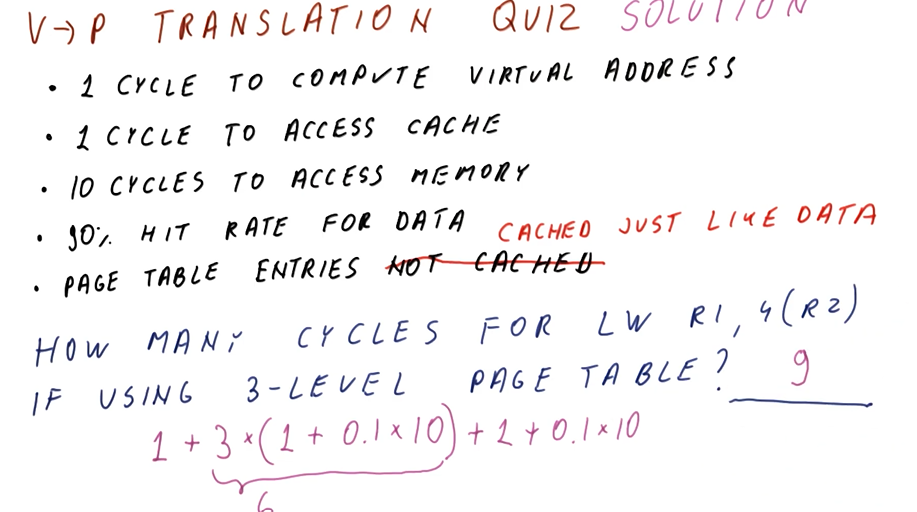 V→P TRANSLATION QUIZ SOLUTION
• 1 CYCLE TO COMPUTE VIRTUAL ADDRESS
• 1 CYCLE TO ACCESS CACHE
• 10 CYCLES TO ACCESS MEMORY
• 90% HIT RATE FOR DATA CACHED JUST LIKE DATA
• PAGE TABLE ENTRIES NOT CACHED
HOW MANY CYCLES FOR LW R1, 4(R2)
IF USING 3-LEVEL PAGE TABLE? 9
1 + 3 × (1 + 0.1 × 10) + 1 + 0.1 × 10
6